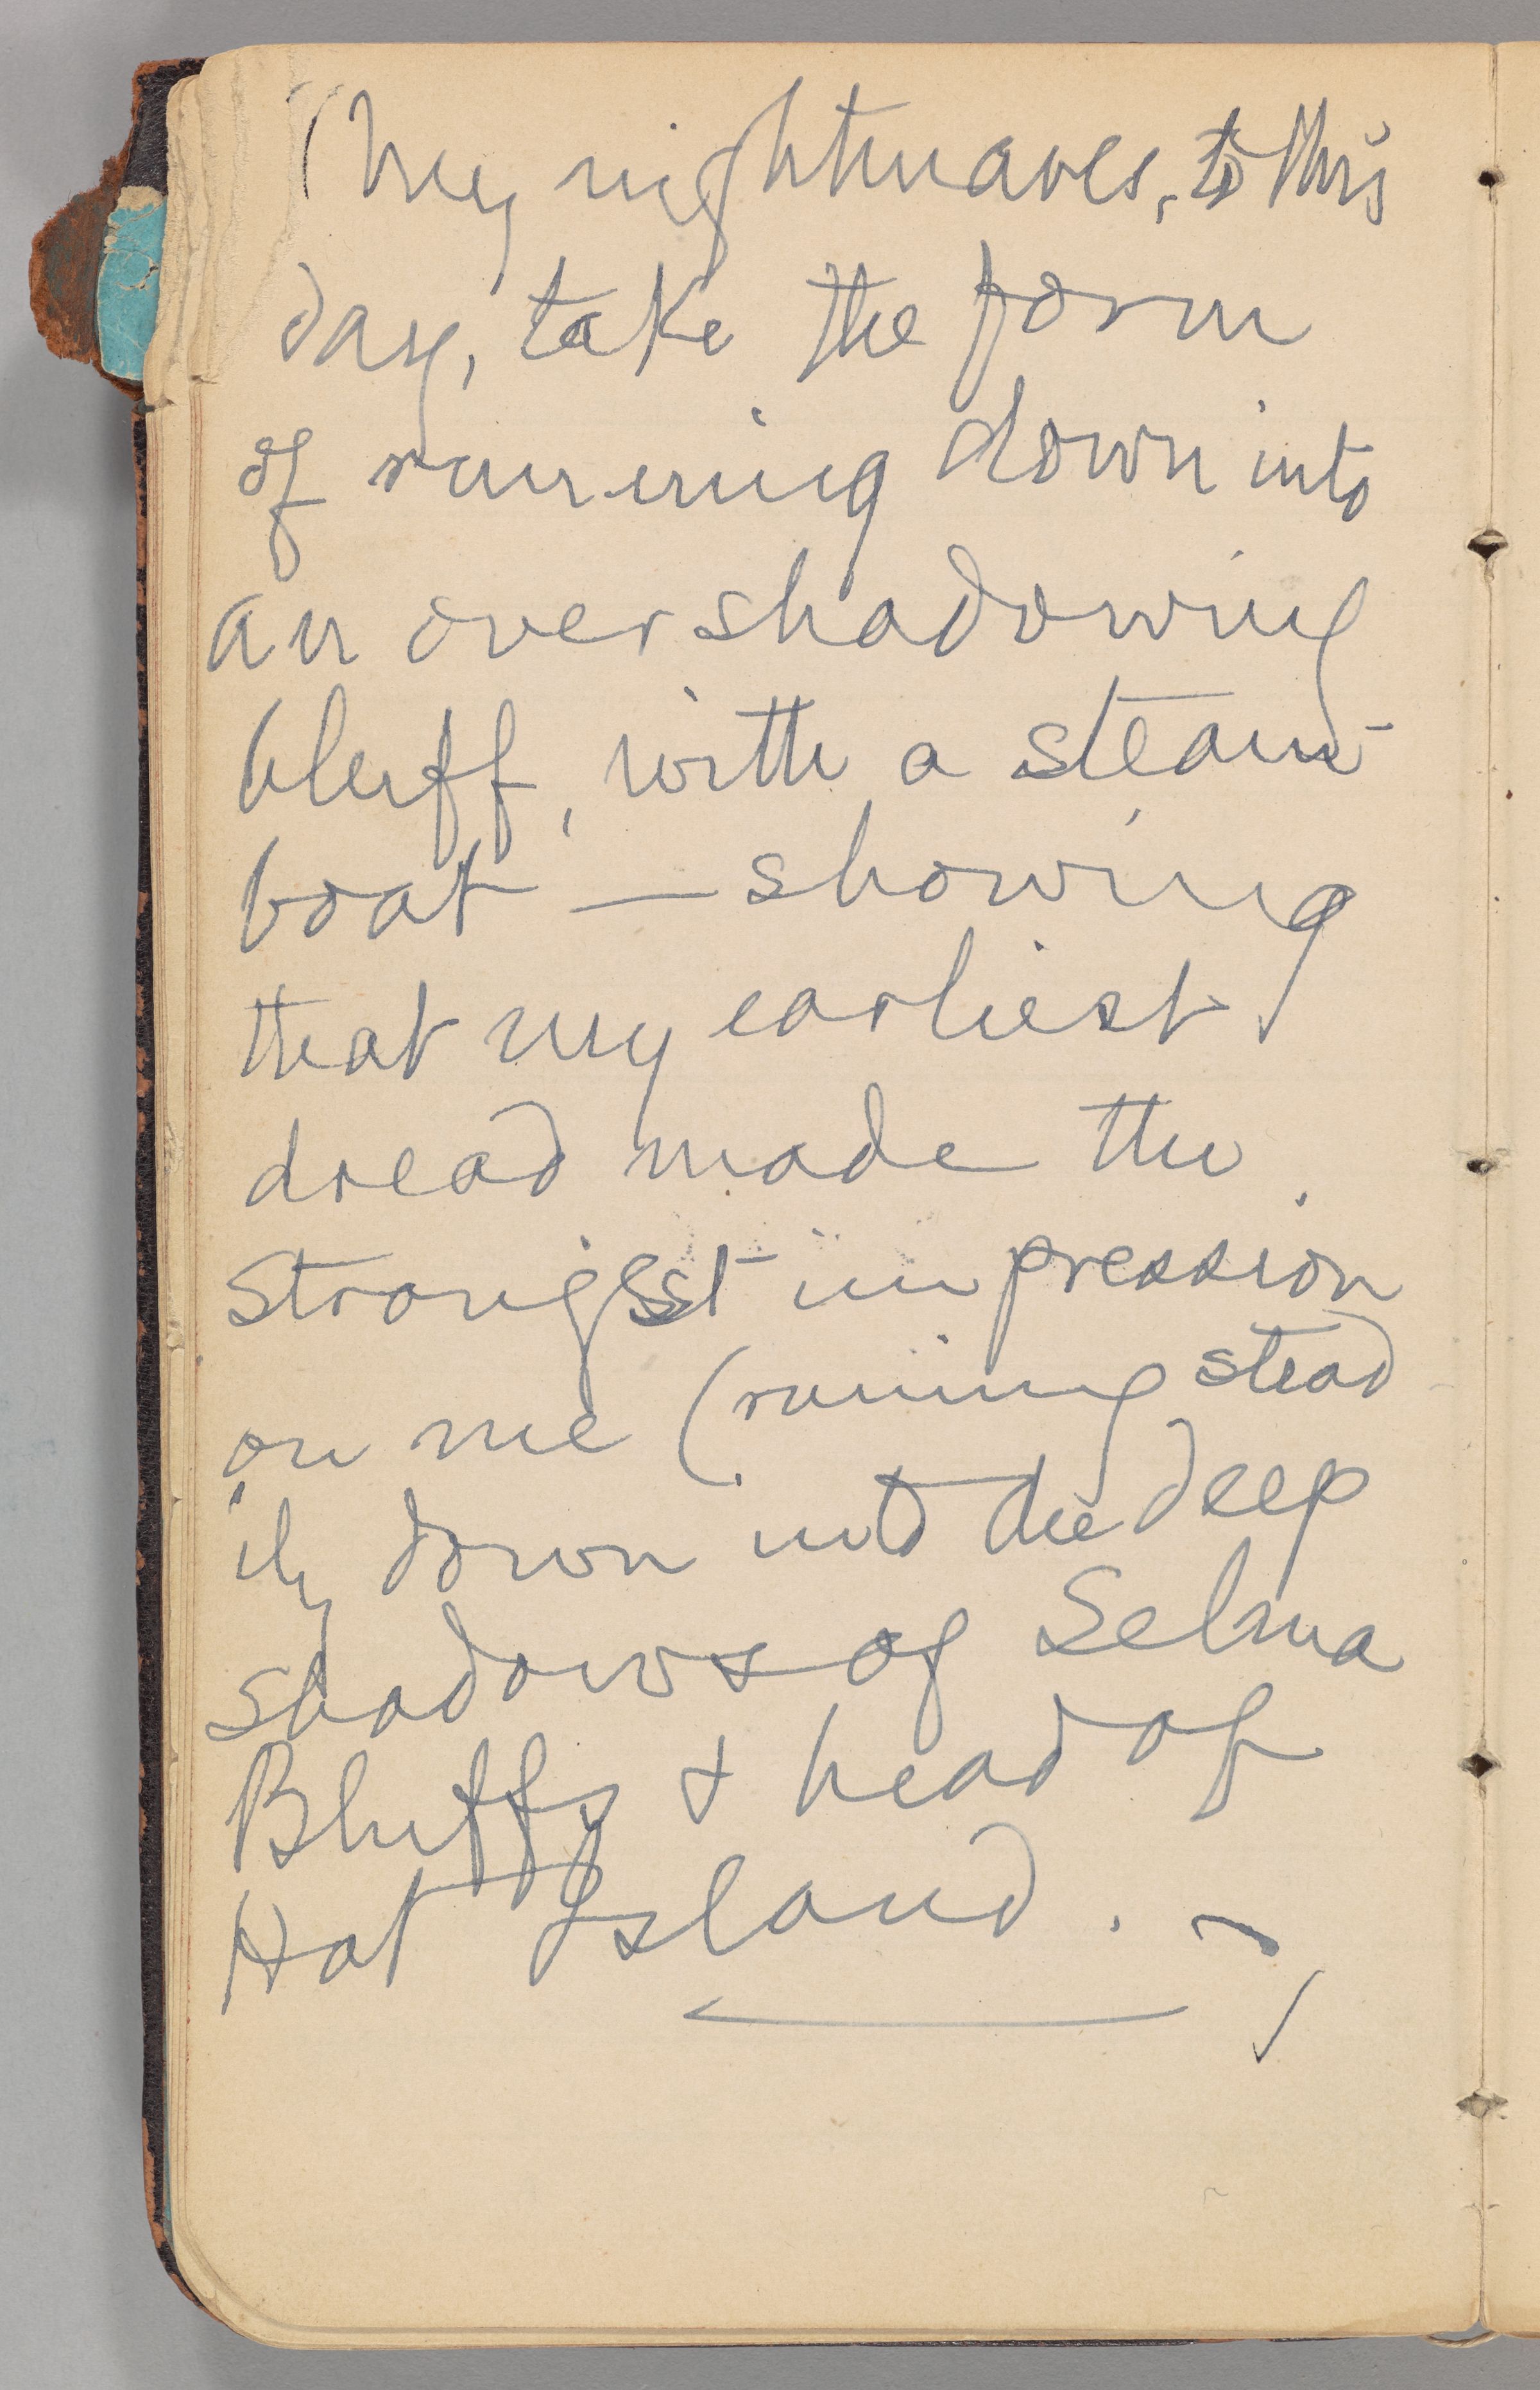 (My nightmares, to this
day, take the form
of running down into
an overshadowing
bluff, with a steam-
boat — showing
that my earliest
dread made the
strongest impression
on me (running stead
ily down into the deep
shadows of Selma
Bluffs & head of
Hat Island.)